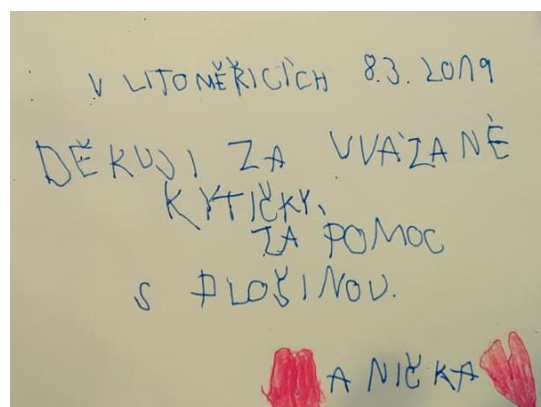 V LITOMĚŘICÍCH 8.3. 2019
DĚKUJI ZA UVÁZANÉ
KYTIČKY,
ZA POMOC
S PLOŠINOU.
ANIČKA